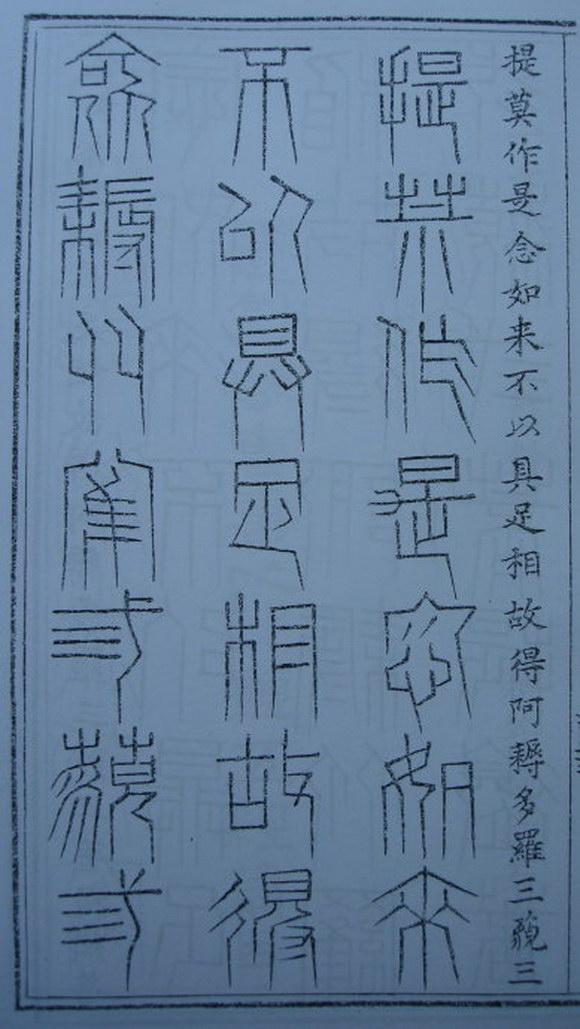 提莫作是念如来不以具足相故得阿耨多羅三藐三
提莫作是念如來
不以具足相故得
阿耨多羅三藐三